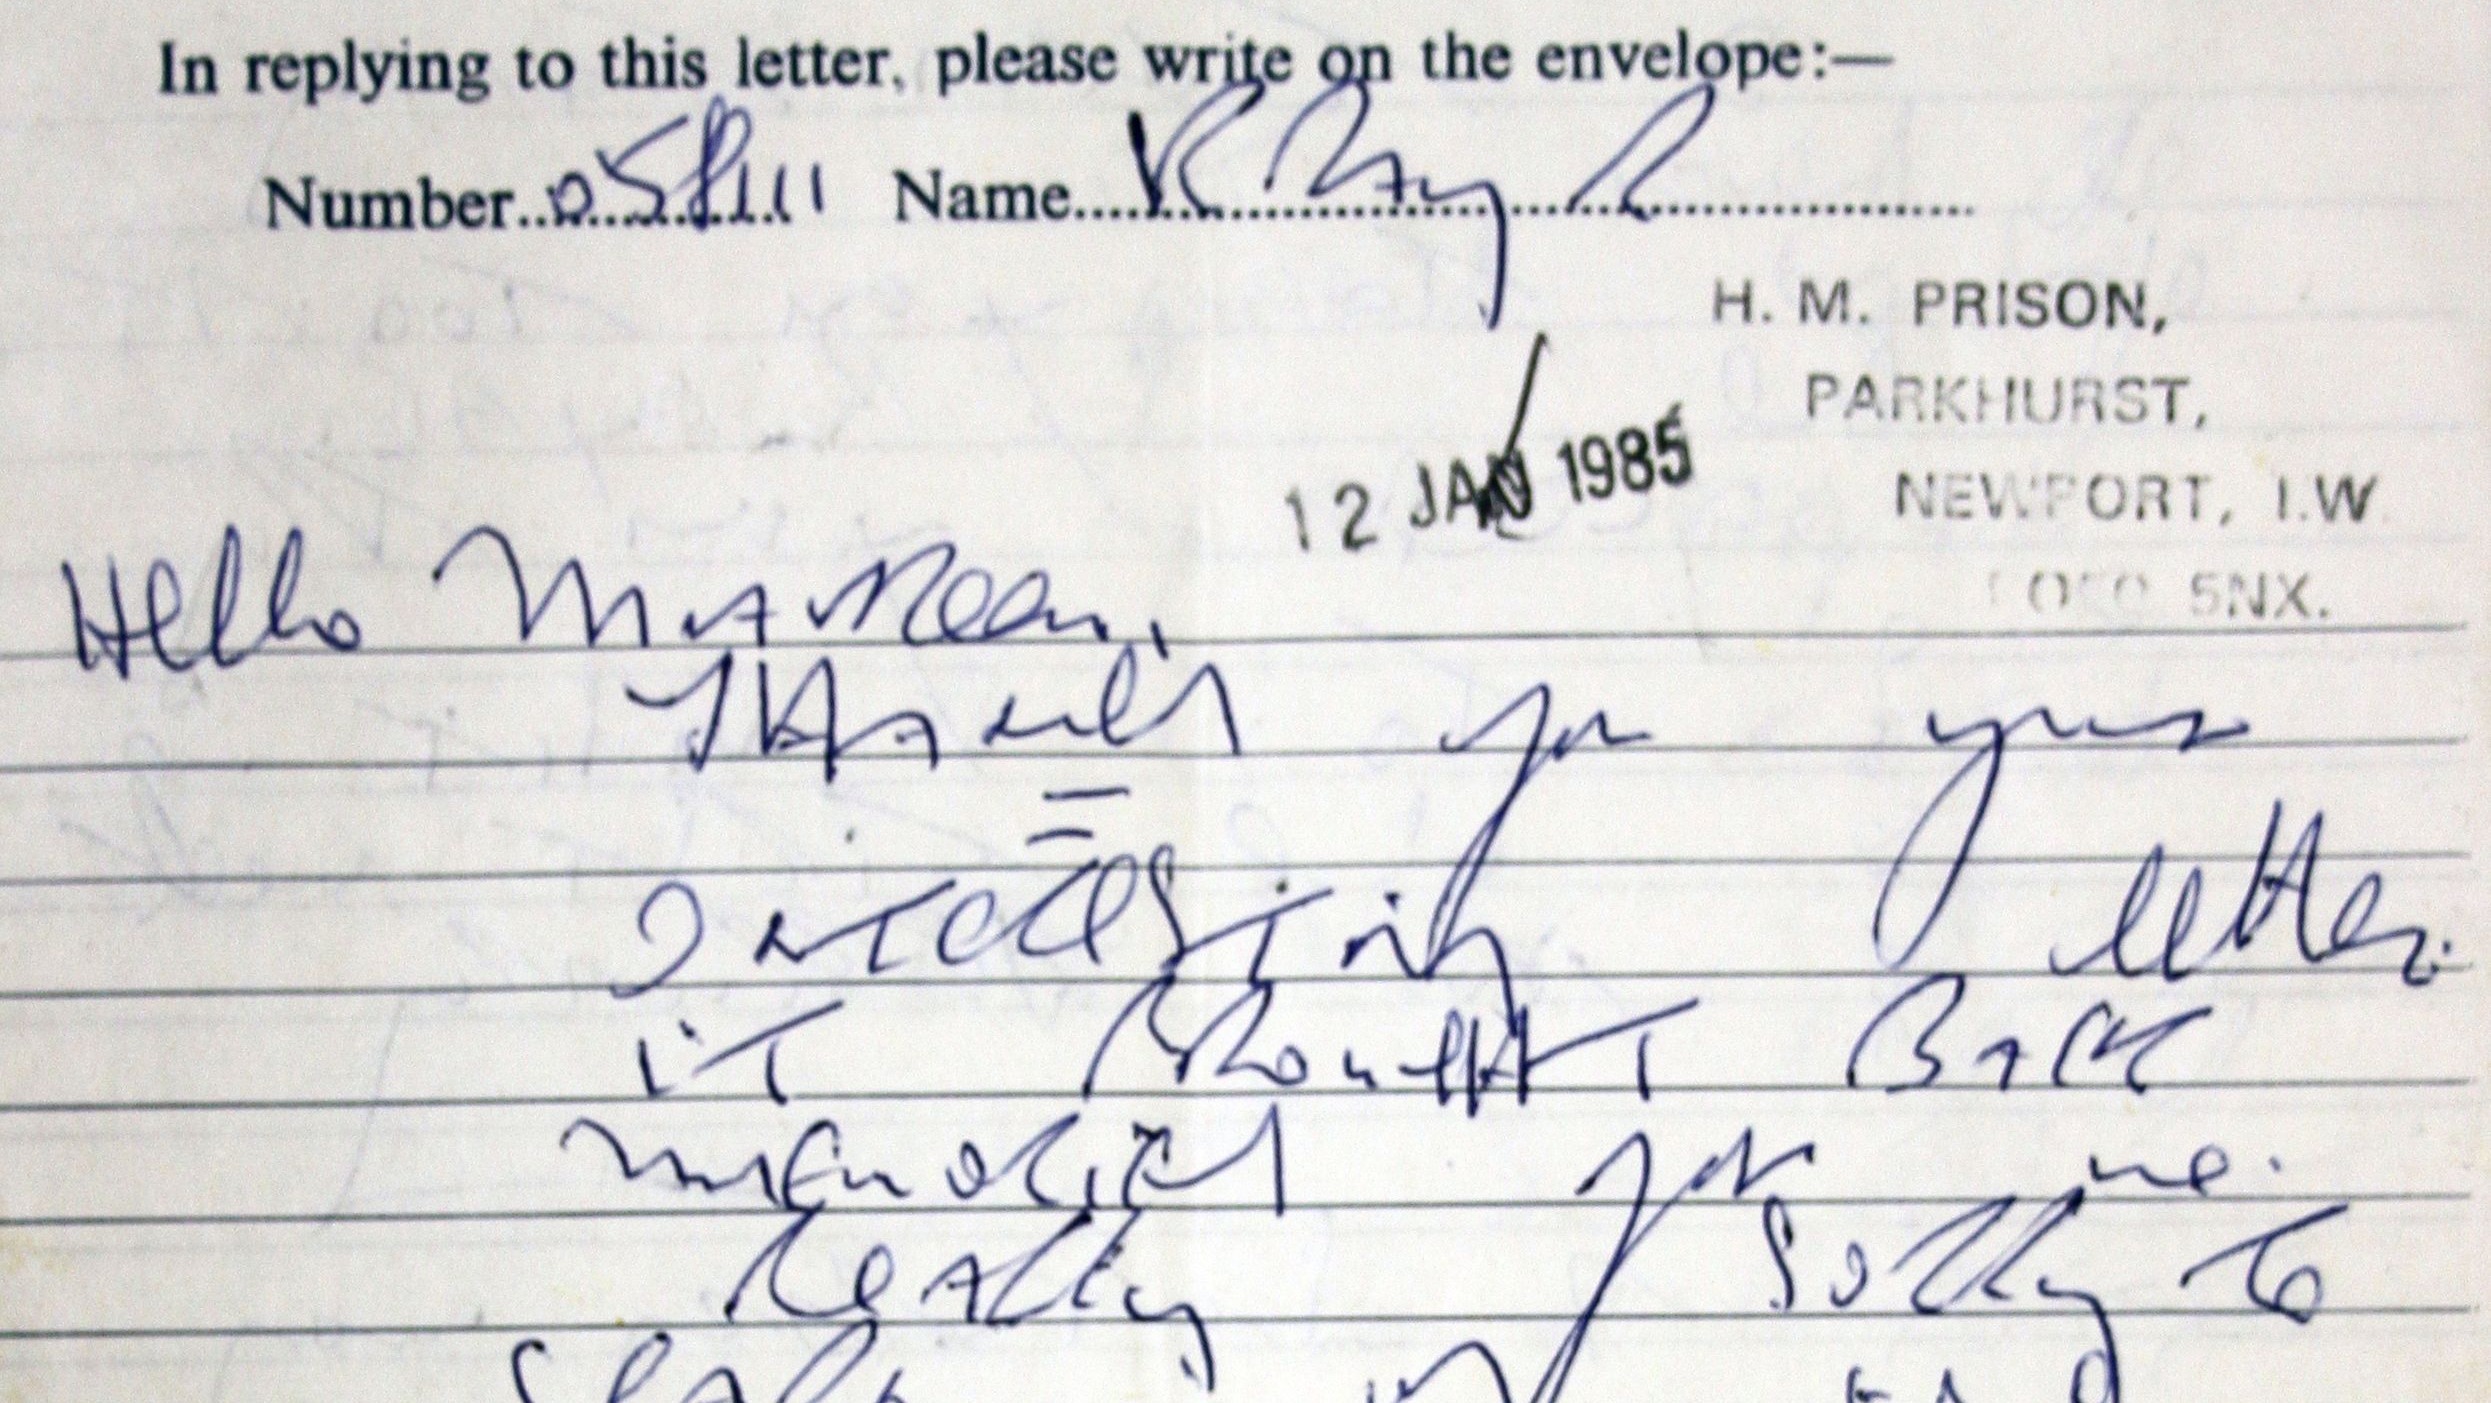 In replying to this letter, please write on the envelope:—
Number 058111 Name K Ray R
H. M. PRISON,
PARKHURST,
12 JAN 1985
NEWPORT, I.W.
5NX.
Hello Maureen,
Thanks for your
Interesting letter.
it Brought Back
memories for me.
Really sorry to